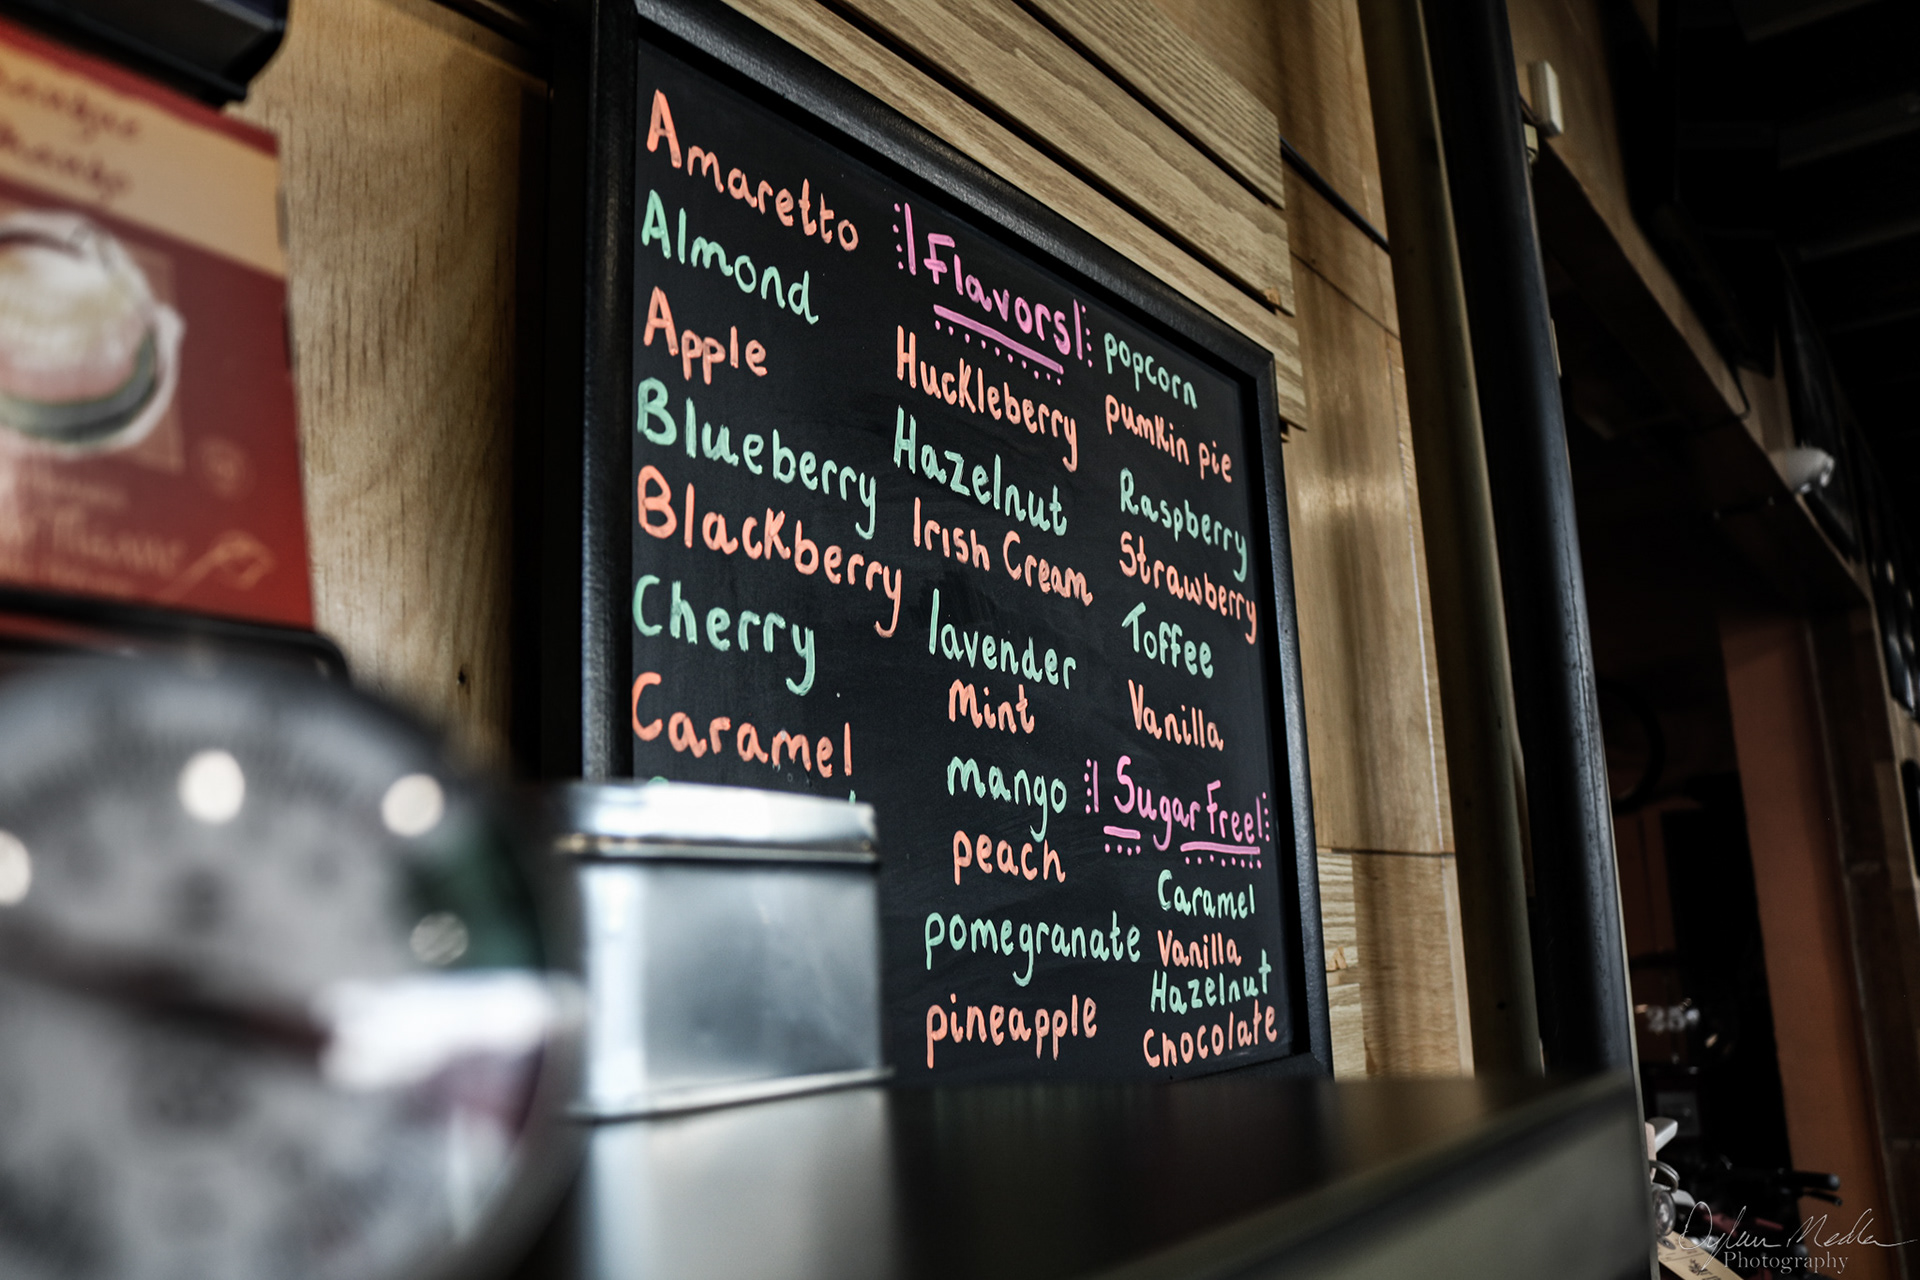 Amaretto
Almond
Apple
Blueberry
Blackberry
Cherry
Caramel
Flavors
Huckleberry
Hazelnut
Irish Cream
lavender
Mint
mango
peach
pomegranate
pineapple
popcorn
pumkin pie
Raspberry
Strawberry
Toffee
Vanilla
Sugar Free
Caramel
Vanilla
Hazelnut
Chocolate
Dylan Medler
Photography